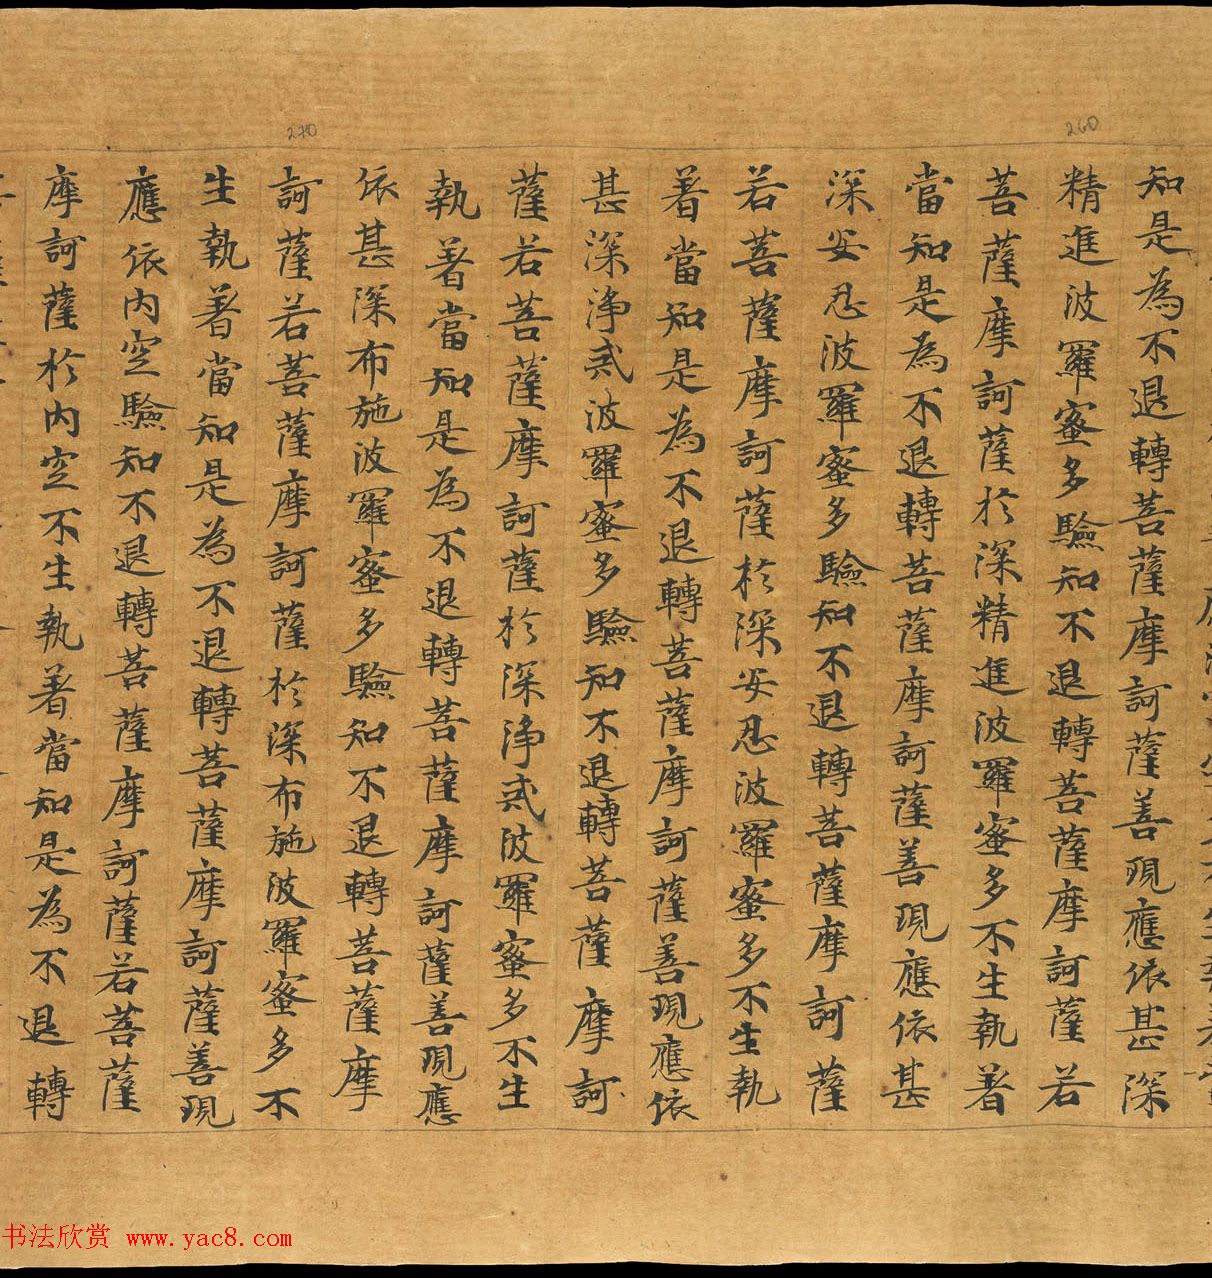 260
270
知是為不退轉菩薩摩訶薩善現應依甚深
精進波羅蜜多驗知不退轉菩薩摩訶薩若
菩薩摩訶薩於深精進波羅蜜多不生執著
當知是為不退轉菩薩摩訶薩善現應依甚
深安忍波羅蜜多驗知不退轉菩薩摩訶薩
若菩薩摩訶薩於深安忍波羅蜜多不生執
著當知是為不退轉菩薩摩訶薩善現應依
甚深淨戒波羅蜜多驗知不退轉菩薩摩訶
薩若菩薩摩訶薩於深淨戒波羅蜜多不生
執著當知是為不退轉菩薩摩訶薩善現應
依甚深布施波羅蜜多驗知不退轉菩薩摩
訶薩若菩薩摩訶薩於深布施波羅蜜多不
生執著當知是為不退轉菩薩摩訶薩善現
應依内空驗知不退轉菩薩摩訶薩若菩薩
摩訶薩於内空不生執著當知是為不退轉
书法欣赏 www.yac8.com